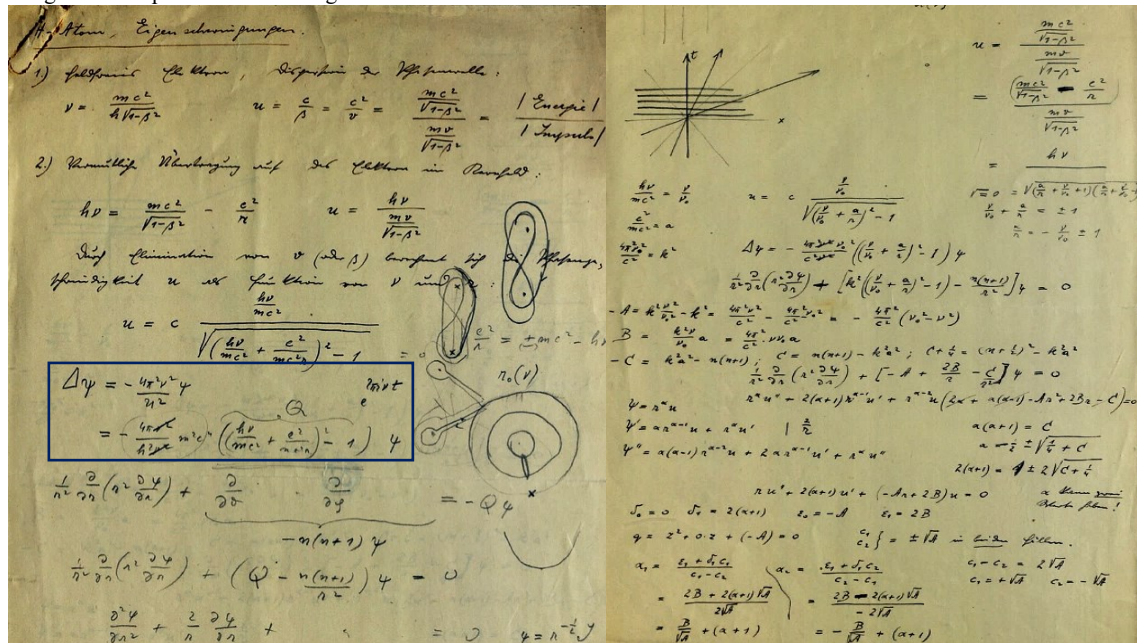 H-Atom, Eigenschwingungen.
1) Feldfreies Elektron, Dispersion der Phasenwelle:
ν = mc²/(h√(1-β²))   u = c/β = c²/v = (mc²/√(1-β²))/(mv/√(1-β²)) = |Energie|/|Impuls|
2.) Vermutliche Übertragung auf das Elektron im Kernfeld:
hν = mc²/√(1-β²) - e²/r   u = hν/(mv/√(1-β²))
Durch Elimination von v (oder β) berechnet sich die Phasenge-
schwindigkeit u als Funktion von ν und r:
u = c (hν/mc²)/√((hν/mc² + e²/mc²r)² - 1)
= 0   e²/r = ± mc² - hν
r₀(ν)
Δψ = - 4π²ν²/u² ψ   e^2πiνt
Q
= - 4π²/h² m²c² ((hν/mc² + e²/mc²r)² - 1) ψ
1/r² ∂/∂r (r² ∂ψ/∂r) + ∂/∂ϑ ∂/∂φ = -Qψ
-n(n+1) ψ
1/r² ∂/∂r (r² ∂ψ/∂r) + (Q - n(n+1)/r²) ψ = 0
∂²ψ/∂r² + 2/r ∂ψ/∂r + = 0   ψ = r^-½ y
t
x
u = (mc²/√(1-β²))/(mv/√(1-β²))
= (mc²/√(1-β²) - e²/r)/(mv/√(1-β²))
= hν
hν/mc² = ν/ν₀   u = c (ν/ν₀)/√((ν/ν₀ + a/r)² - 1)
e²/mc² = a
√ = 0   ν/ν₀ + a/r = ± 1
a/r = - ν/ν₀ ± 1
4π²ν₀²/c² = k²   Δψ = - 4π²ν₀²/c² ((ν/ν₀ + a/r)² - 1) ψ
1/r² ∂/∂r (r² ∂ψ/∂r) + [k² ((ν/ν₀ + a/r)² - 1) - n(n+1)/r²] ψ = 0
- A = k² ν²/ν₀² - k² = 4π²ν²/c² - 4π²/c² ν₀² = - 4π²/c² (ν₀² - ν²)
B = k²ν/ν₀ a = 4π²/c² νν₀a
- C = k²a² - n(n+1) ; C = n(n+1) - k²a² ; C + ¼ = (n+½)² - k²a²
1/r² ∂/∂r (r² ∂ψ/∂r) + [-A + 2B/r - C/r²] ψ = 0
ψ = r^α u   r^α u'' + 2(α+1) r^α-1 u' + r^α-2 u (2α + α(α-1) - Ar² + 2Br - C) = 0
ψ' = α r^α-1 u + r^α u' | 2/r   α(α+1) = C
α = -½ ± √(¼ + C)
ψ'' = α(α-1) r^α-2 u + 2α r^α-1 u' + r^α u''
2(α+1) = 1 ± 2√(C + ¼)
ru'' + 2(α+1) u' + (-Ar + 2B) u = 0
δ₀ = 0   δ₁ = 2(α+1)   ε₀ = -A   ε₁ = 2B
q = z² + 0·z + (-A) = 0   c₁ c₂ } = ± √A in beiden Fällen.
α₁ = (ε₁ + δ₁c₁)/(c₁ - c₂)   α₂ = (ε₁ + δ₁c₂)/(c₂ - c₁)   c₁ - c₂ = 2√A
c₁ = +√A   c₂ = -√A
= (2B + 2(α+1)√A)/(2√A)   = (2B - 2(α+1)√A)/(-2√A)
= B/√A + (α+1)   = - B/√A + (α+1)